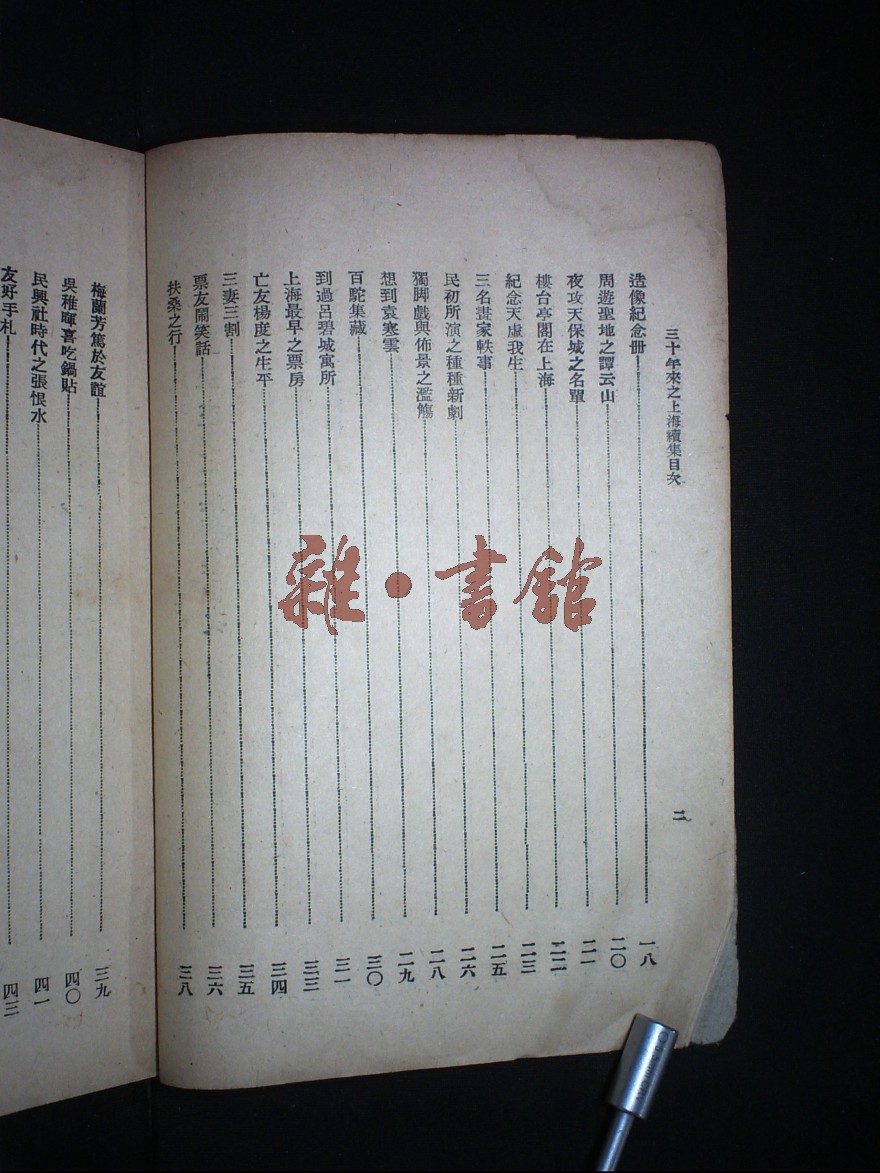 三十年來之上海續集目次
二
造像紀念冊 一八
周遊聖地之譚云山 二〇
夜攻天保城之名單 二一
樓台亭閣在上海 二二
紀念天虛我生 二三
三名畫家軼事 二五
民初所演之種種新劇 二六
獨脚戲與佈景之濫觴 二八
想到袁寒雲 二九
百駝集藏 三〇
到過呂碧城寓所 三一
上海最早之票房 三三
亡友楊度之生平 三四
三妻三割 三五
票友鬧笑話 三六
扶桑之行 三八
梅蘭芳篤於友誼 三九
吳稚暉喜吃鍋貼 四〇
民興社時代之張恨水 四一
友好手札 四三
雜·書館